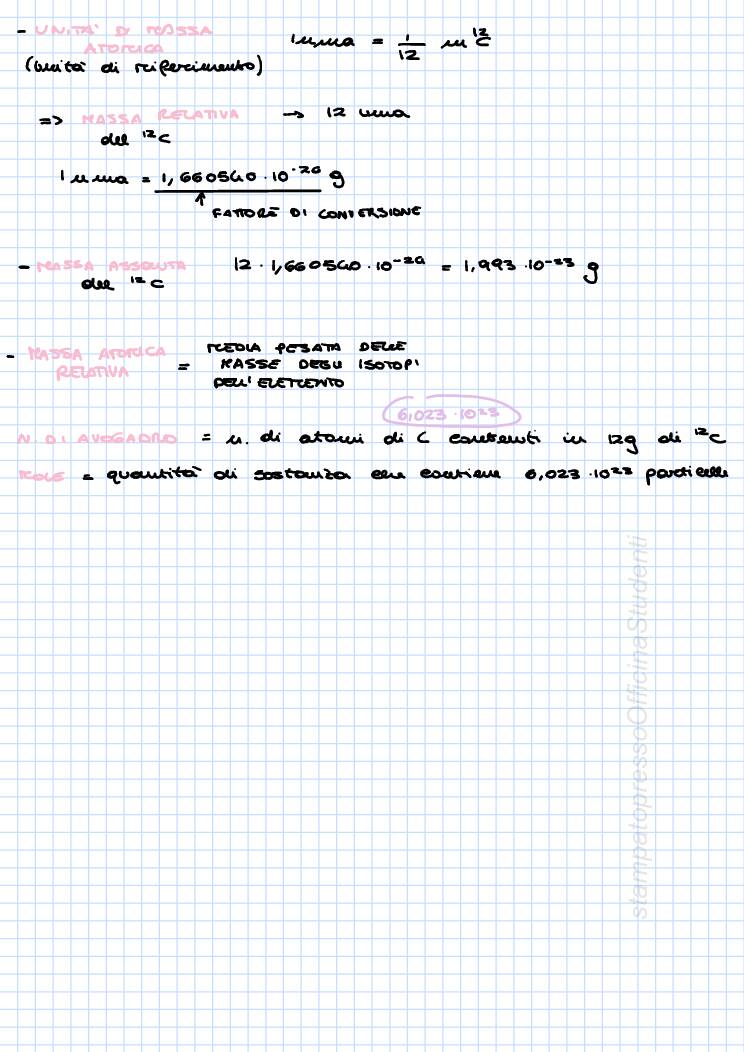 - UNITA' DI MASSA 1 u.ma = 1/12 m ¹²C
ATOMICA
(unità di riferimento)
=> MASSA RELATIVA → 12 uma
del ¹²C
1 u ma = 1,660540 · 10⁻²⁴ g
↑ FATTORE DI CONVERSIONE
- MASSA ASSOLUTA 12 · 1,660540 · 10⁻²⁴ = 1,993 · 10⁻²³ g
del ¹²C
- MASSA ATOMICA = MEDIA PESATA DELLE
RELATIVA MASSE DEGLI ISOTOPI
DELL' ELEMENTO
6,023 · 10²³
N. DI AVOGADRO = n. di atomi di C contenuti in 12g di ¹²C
MOLE = quantità di sostanza che contiene 6,023 · 10²³ particelle
stampatopressoOfficinaStudenti